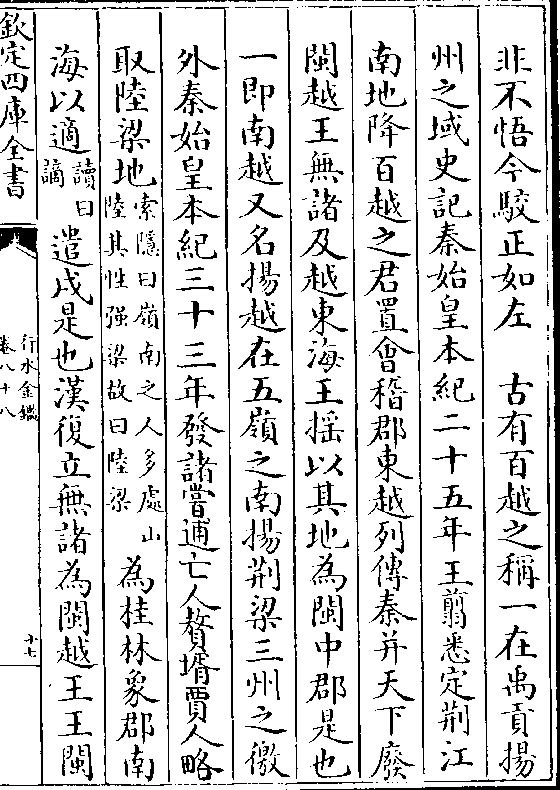 非不悟今駮正如左　古有百越之稱一在禹貢揚
州之域史記秦始皇本紀二十五年王翦悉定荆江
南地降百越之君置會稽郡東越列傳秦并天下廢
閩越王無諸及越東海王揺以其地為閩中郡是也
一即南越又名揚越在五嶺之南揚荆梁三州之徼
外秦始皇本紀三十三年發諸嘗逋亡人贅壻賈人略
取陸梁地索隱曰嶺南之人多處山陸其性强梁故曰陸梁為桂林象郡南
海以適讀曰謫遣戍是也漢復立無諸為閩越王王閩
欽定四庫全書
行水金鑑
卷八十八
十七